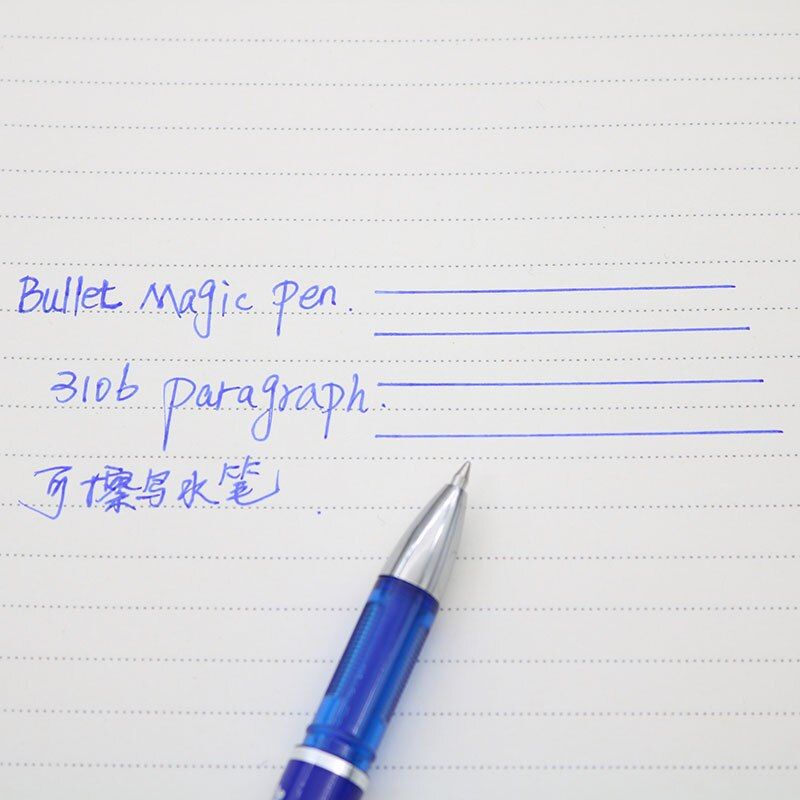 Bullet Magic Pen.
3106 paragraph.
可擦写水笔